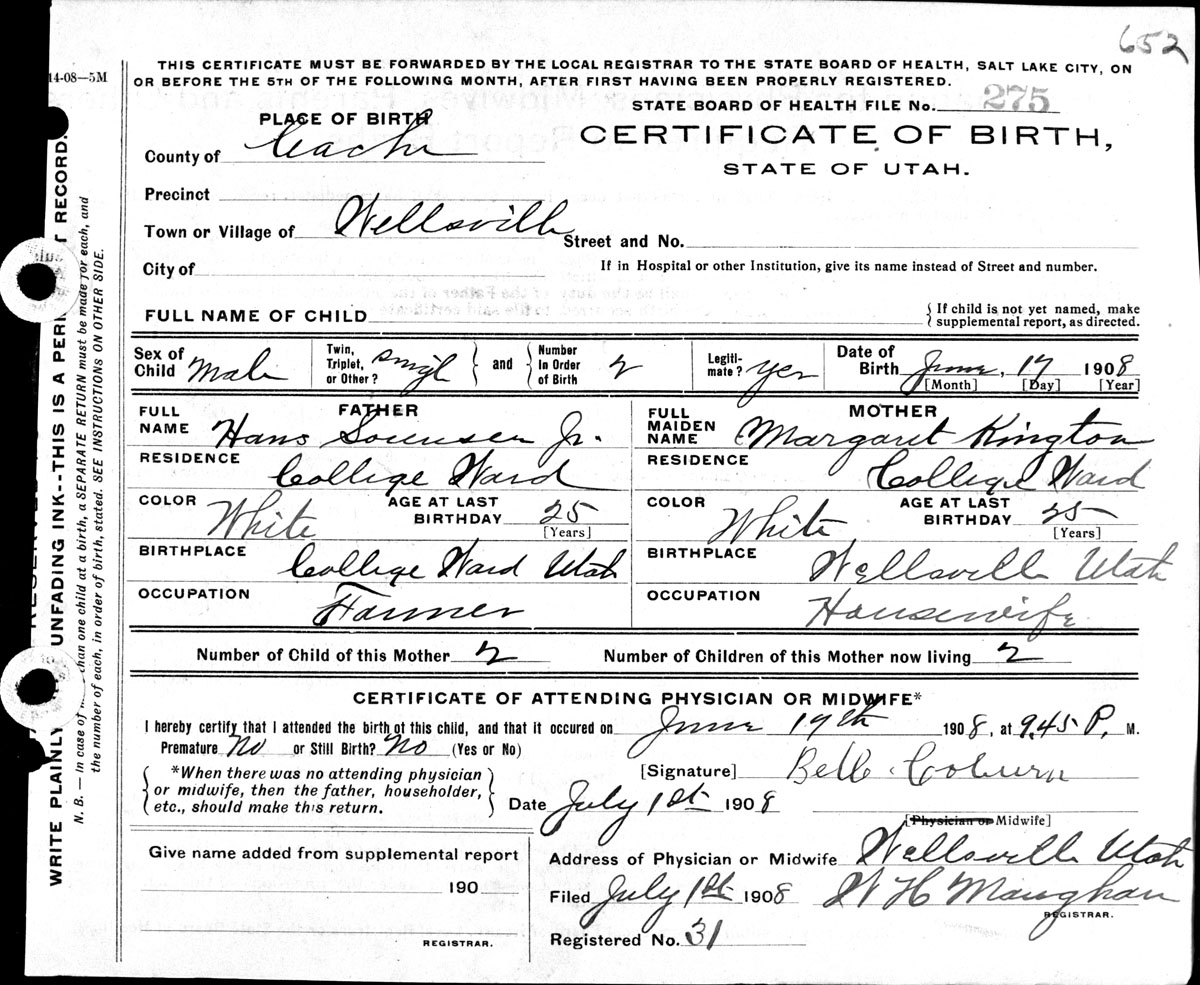 652
14-08—5M
THIS CERTIFICATE MUST BE FORWARDED BY THE LOCAL REGISTRAR TO THE STATE BOARD OF HEALTH, SALT LAKE CITY, ON
OR BEFORE THE 5TH OF THE FOLLOWING MONTH, AFTER FIRST HAVING BEEN PROPERLY REGISTERED.
STATE BOARD OF HEALTH FILE No. 275
PLACE OF BIRTH
CERTIFICATE OF BIRTH,
STATE OF UTAH.
County of Cache
Precinct
Town or Village of Wellsville
Street and No.
City of
If in Hospital or other Institution, give its name instead of Street and number.
FULL NAME OF CHILD
{ If child is not yet named, make
supplemental report, as directed.
Sex of Child Male
Twin, Triplet, or Other? Singl } and { Number In Order of Birth 2
Legiti-mate? yes
Date of Birth June, 17 1908
[Month] [Day] [Year]
FATHER
FULL NAME Hans Sorensen Jr.
MOTHER
FULL MAIDEN NAME Margaret Kington
RESIDENCE College Ward
RESIDENCE College Ward
COLOR White AGE AT LAST BIRTHDAY 25 [Years]
COLOR White AGE AT LAST BIRTHDAY 25 [Years]
BIRTHPLACE College Ward Utah
BIRTHPLACE Wellsville Utah
OCCUPATION Farmer
OCCUPATION Housewife
Number of Child of this Mother 2 Number of Children of this Mother now living 2
CERTIFICATE OF ATTENDING PHYSICIAN OR MIDWIFE*
I hereby certify that I attended the birth of this child, and that it occured on June 17th 1908, at 9.45 P. M.
Premature No or Still Birth? No (Yes or No)
{ *When there was no attending physician
or midwife, then the father, householder,
etc., should make this return. }
[Signature] Bell Coburn
Date July 1st 1908
[Physician or Midwife]
Give name added from supplemental report
190
REGISTRAR.
Address of Physician or Midwife Wellsville Utah
Filed July 1st 1908 W H Maughan
REGISTRAR.
Registered No. 31
WRITE PLAINLY UNFADING INK--THIS IS A RECORD.
N. B. — In case of than one child at a birth, a SEPARATE RETURN must be made for each, and
the number of each, in order of birth, stated. SEE INSTRUCTIONS ON OTHER SIDE.